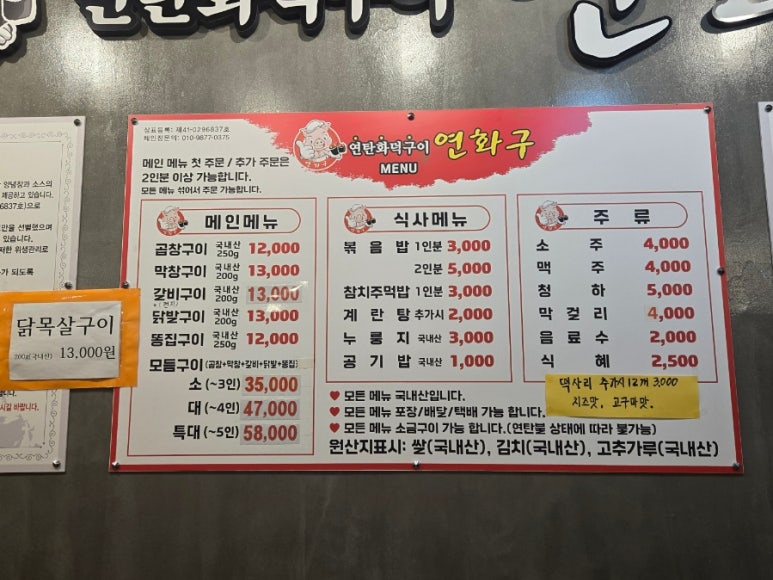 연탄화덕구이 연
양념장과 소스의
제공하고 있습니다.
6837호)으로
만을 선별했으며
있습니다.
저한 위생관리로
가 되도록
시길 바랍니다.
닭목살구이
200g(국내산) 13,000원
상표등록: 제41-0296837호
체인점문의: 010-9877-0375
연탄화덕구이 연화구
MENU
메인 메뉴 첫 주문 / 추가 주문은
2인분 이상 가능합니다.
모든 메뉴 섞어서 주문 가능합니다.
메인메뉴
곱창구이 국내산 250g 12,000
막창구이 국내산 200g 13,000
갈비구이 국내산 200g 13,000
닭발구이 국내산 200g 13,000
똥집구이 국내산 250g 12,000
모듬구이 (곱창+막창+갈비+닭발+똥집)
소 (~3인) 35,000
대 (~4인) 47,000
특대 (~5인) 58,000
식사메뉴
볶음밥 1인분 3,000
2인분 5,000
참치주먹밥 1인분 3,000
계란탕 추가시 2,000
누룽지 국내산 3,000
공기밥 국내산 1,000
주류
소주 4,000
맥주 4,000
청하 5,000
막걸리 4,000
음료수 2,000
식혜 2,500
떡사리 추가시 12개 3,000
치즈맛, 고구마맛.
♥ 모든 메뉴 국내산입니다.
♥ 모든 메뉴 포장/배달/택배 가능 합니다.
♥ 모든 메뉴 소금구이 가능 합니다.(연탄불 상태에 따라 불가능)
원산지표시: 쌀(국내산), 김치(국내산), 고추가루(국내산)